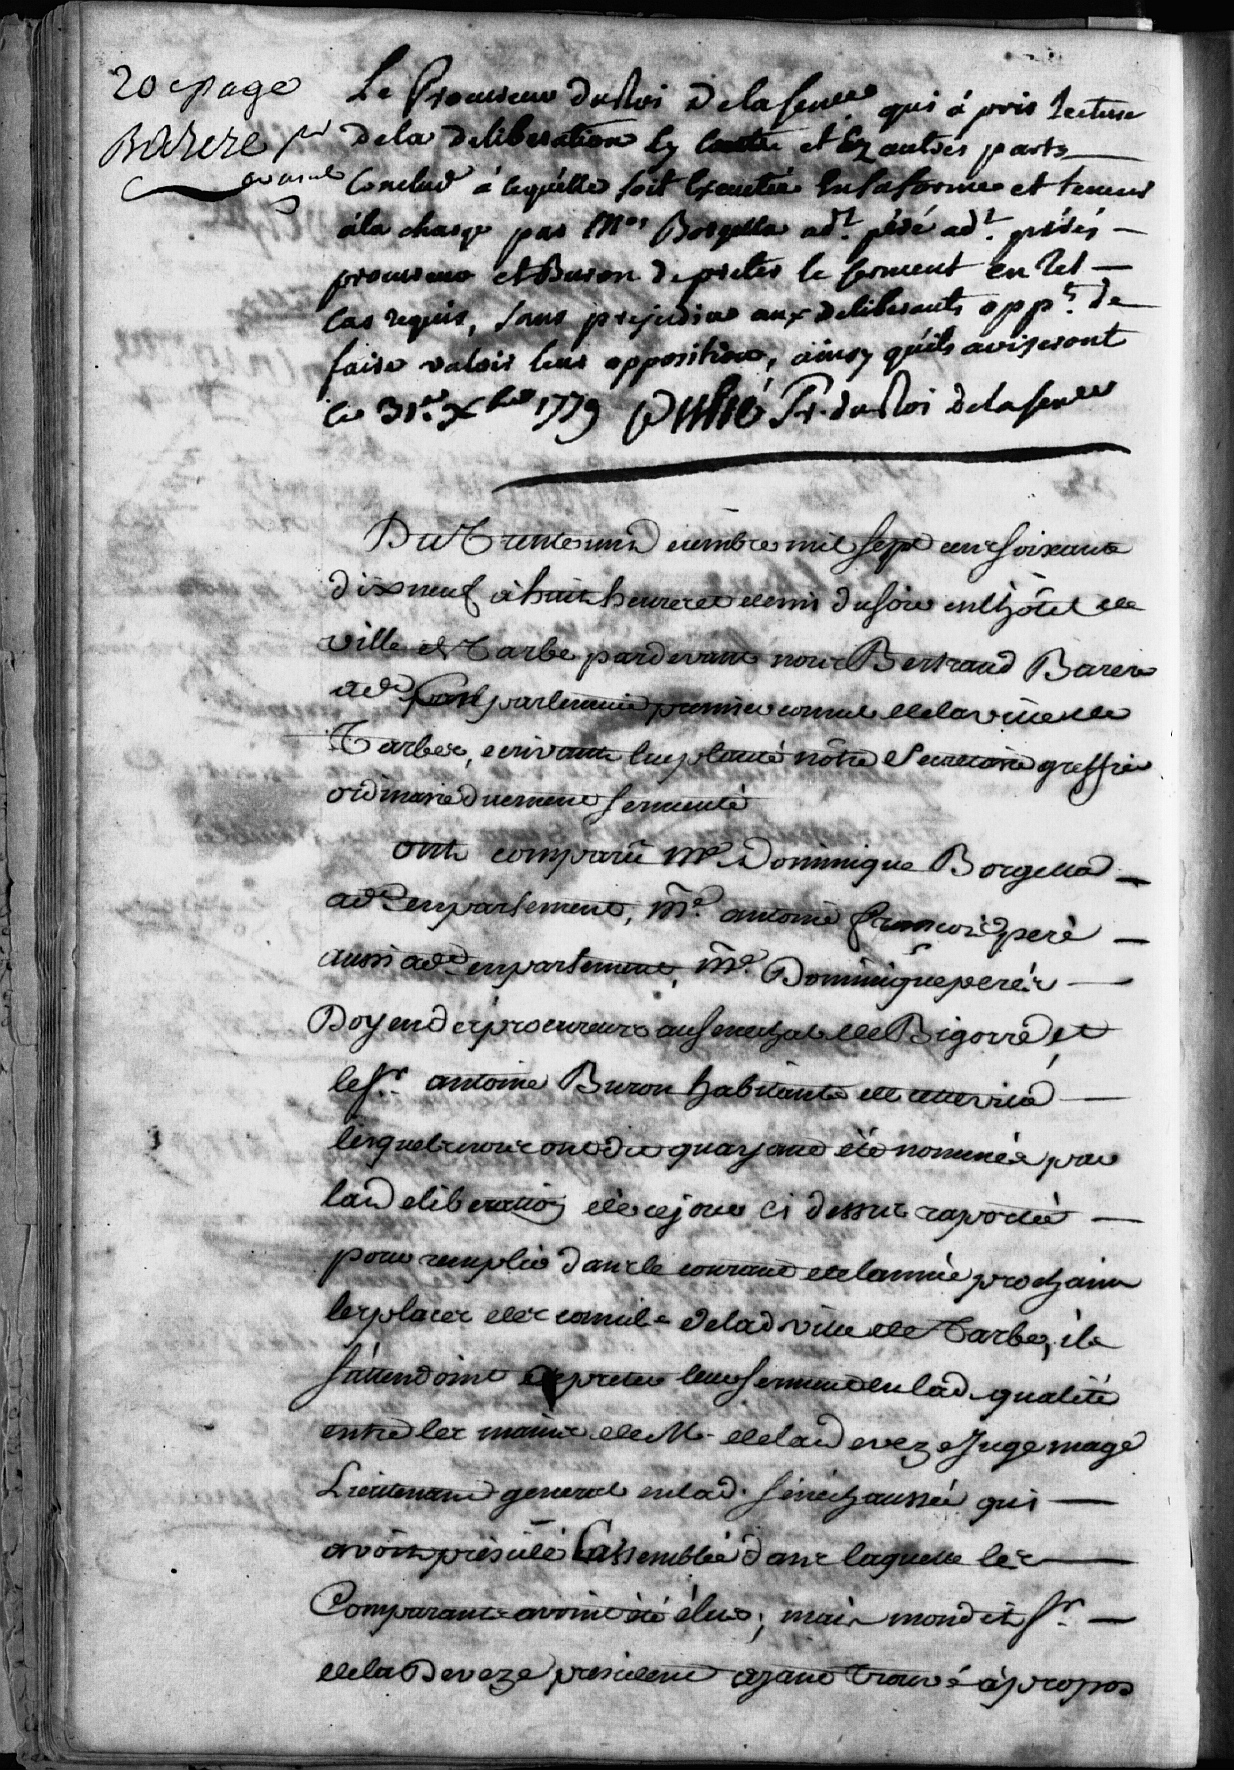 20e page
Barere pr
consul
Le Procureur du Roi de la senée qui á pris Lecture
de la deliberation ez contre et ez autres parts
Conclud á cequ'elle soit Executée en sa forme et teneur
á la charge par Mes Borgella adt. péré adt. pérés
procureur et Buron de preter le serment en tel
Cas requis, sans prejudice aux deliberants oppts. de
faire valoir leur opposition, ainsy qu'ils aviseront
le 31e. Xbre 1779 Pr. du Roi de la senée
Du Trente un decembre mil sept cent soixante
dix neuf á huit heures et demi du soir en lhôtel de
ville de Tarbe pardevant nous Bertrand Barere
adt. en parlement premier consul de la ville de
Tarbes, ecrivant Secretaire greffier
ordinaire duement sermenté
ont comparu Me. Dominique Borgella
adt. en parlement, Me. antoine françois peré
aussi adt. en parlement, Me. Dominique perés
Doyen des procureurs au senechal de Bigorre et
le Sr. antoine Buron habitants de cette ville
lesquels nous ont dit quayant été nommés par
la deliberation de ce jour ci dessus raportée
pour remplir dans le courant de lannée prochaine
les places des consuls de lad. ville de Tarbes, ils
sattendoint a preter leur serment en lad. qualité
entre les mains de M. de la deveze Juge mage
Lieutenant general en lad. sénéchaussée qui
avoit présidé Lassemblée dans laquelle les
Comparants avoint été élus; mais mondit Sr.
de la Deveze president ayant trouvé á propos